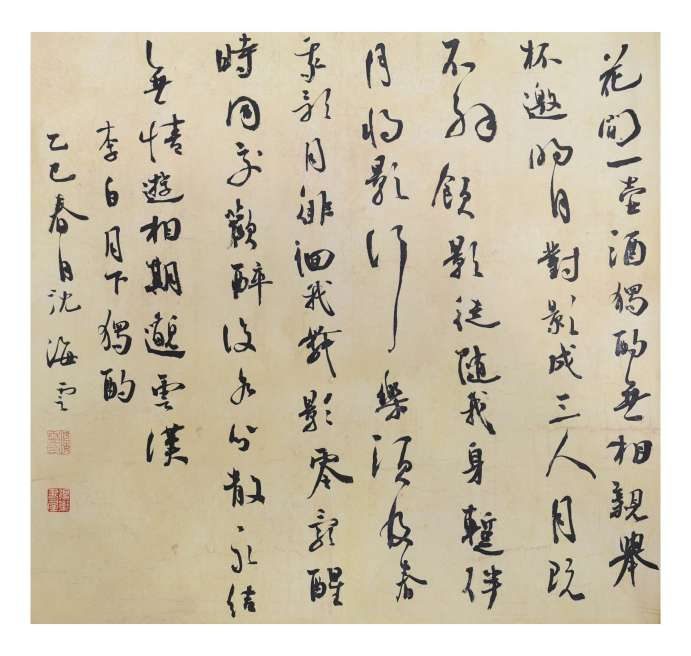 花間一壺酒獨酌無相親舉
杯邀明月對影成三人月既
不解飲影徒隨我身暫伴
月將影行樂須及春
我歌月徘徊我舞影零亂醒
時同交歡醉後各分散永結
無情遊相期邈雲漢
李白月下獨酌
乙巳春日沈海雲